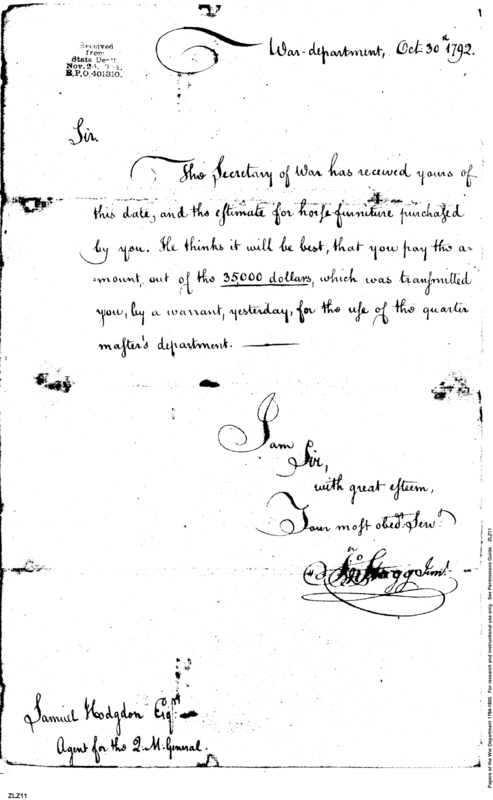 Received
from
State Dept
R.P.O. 401310.
War-department, Oct. 30th 1792.
Sir.
The Secretary of War has received yours of
this date, and the estimate for horse furniture purchased
by you. He thinks it will be best, that you pay the a-
-mount, out of the 35000 dollars, which was transmitted
you, by a warrant, yesterday, for the use of the quarter
master's department.
I am
Sir,
with great esteem,
Your most obedt. Servt.
Jno Stagg Junr.
Samuel Hodgdon Esqr
Agent for the Q. M. General.
ZLZ11
Papers of the War Department 1784-1800. For research and instructional use only. See Permissions Guide. ZLZ11